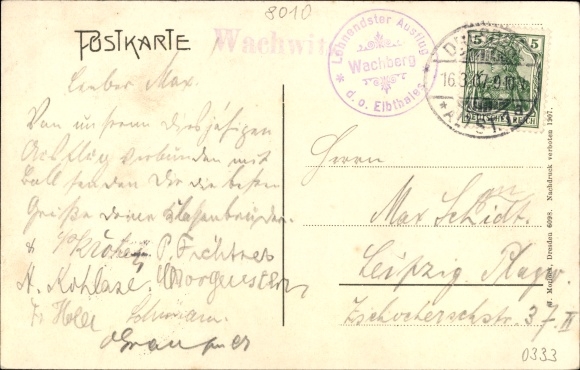 8010
POSTKARTE
Wachwitz
Lohnendster Ausflug
Wachberg
* d. o. Elbthales *
5 5
DEUTSCHES REICH
Lieber Max.
Von unserem diesjährigen
Ausflug verbunden mit
Ball senden Dir die besten
Grüße deine Klassenbrüder.
P. Fichtner
A. Kohlase
Grauner
Herrn
Max Schmidt.
Leipzig Plagw.
Zschocherschstr. 37 II
Dresden 6098. Nachdruck verboten 1907.
0333